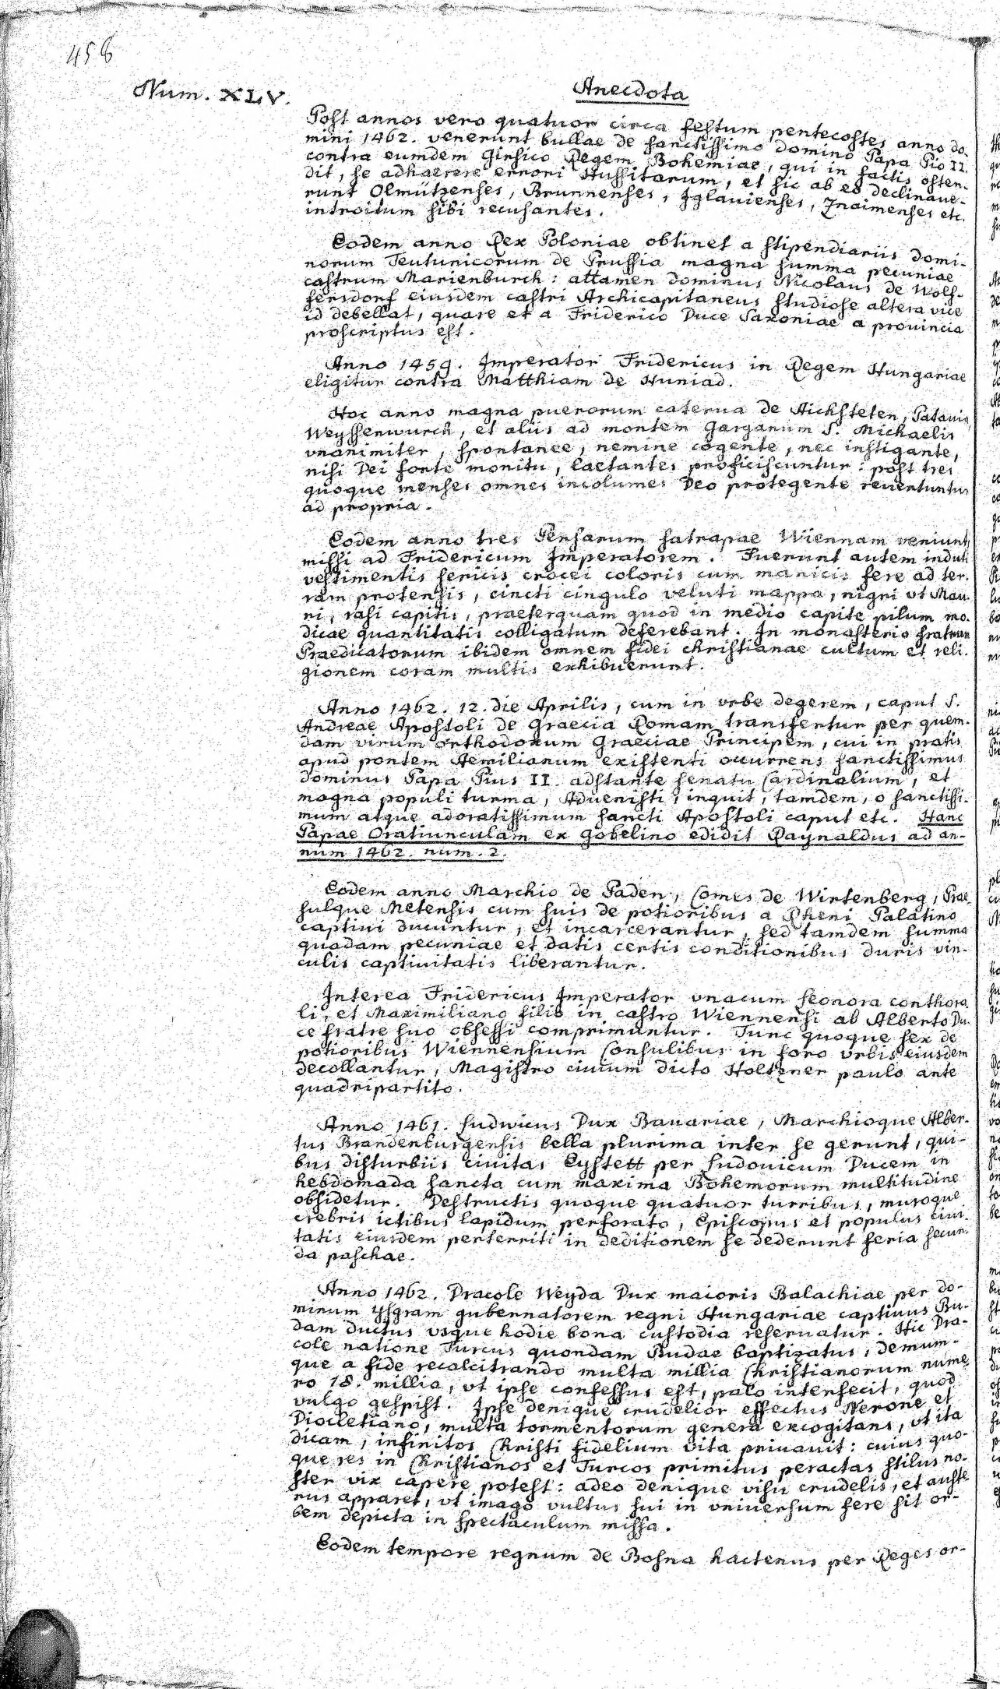 458
Num. XLV.
Anecdota
Post annos vero quatuor circa festum pentecostes anno do-
mini 1462. venerunt bullae de sanctissimo domino Papa Pio II.
contra eumdem Girsico Regem Bohemiae, qui in factis osten-
dit, se adhaerere errori Hussitarum, et sic ab eo declinave-
runt Olmützenses, Brunnenses, Iglavienses, Znaimenses etc.
introitum sibi recusantes.
Eodem anno Rex Poloniae obtinet a stipendiariis domi-
norum Teutunicorum de Prussia magna summa pecuniae
castrum Marienburch: attamen dominus Nicolaus de Wolf-
fersdorf eiusdem castri Archicapitaneus studiose altera vice
id debellat, quare et a Friderico Duce Saxoniae a provincia
proscriptus est.
Anno 1459. Imperator Fridericus in Regem Hungariae
eligitur contra Matthiam de Huniad.
Hoc anno magna puerorum caterua de Aichsteten, Patauia
Weyssenwurch, et aliis ad montem Garganum S. Michaelis
vnanimiter, spontanee, nemine cogente, nec instigante,
nisi Dei forte monitu, laetantes proficiscuntur: post tres
quoque menses omnes incolumes Deo protegente reuertuntur
ad propria.
Eodem anno tres Persarum satrapae Wiennam veniunt
missi ad Fridericum Imperatorem. Fuerunt autem induti
vestimentis sericis crocei coloris cum manicis fere ad ter-
ram protensis, cincti cingulo veluti mappa, nigri vt Mau-
ri, rasi capitis, praeterquam quod in medio capite pilum mo-
dicae quantitatis colligatum deferebant. In monasterio fratrum
Praedicatorum ibidem omnem fidei christianae cultum et reli-
gionem coram multis exhibuerunt.
Anno 1462. 12. die Aprilis, cum in vrbe degerem, caput S.
Andreae Apostoli de Graecia Romam transfertur per quem-
dam virum orthodoxum Graeciae Principem, cui in pratis
apud pontem Aemilianum existenti occurrens sanctissimus
dominus Papa Pius II. adstante senatu Cardinalium, et
magna populi turma, Advenisti, inquit, tamdem, o sanctissi-
mum atque adoratissimum sancti Apostoli caput etc. Hanc
Papae Oratiunculam ex Gobelino edidit Raynaldus ad an-
num 1462. num. 2.
Eodem anno Marchio de Paden, Comes de Wirtenberg, Prae-
sulque Metensis cum suis de potioribus a Rheni Palatino
captiui ducuntur, et incarcerantur, sed tamdem summa
quadam pecuniae et datis certis conditionibus duris vin-
culis captiuitatis liberantur.
Interea Fridericus Imperator vnacum Leonora conthora-
li, et Maximiliano filio in castro Wiennensi ab Alberto Du-
ce fratre suo obsessi comprimuntur. Tunc quoque sex de
potioribus Wiennensium Consulibus in foro vrbis eiusdem
decollantur, Magistro ciuium dicto Holtzner paulo ante
quadripartito.
Anno 1461. Ludwicus Dux Bauariae, Marchioque Alber-
tus Brandenburgensis bella plurima inter se gerunt, qui-
bus disturbiis ciuitas Eystett per Ludouicum Ducem in
hebdomada sancta cum maxima Bohemorum multitudine
obsidetur. Destructis quoque quatuor turribus, muroque
crebris ictibus lapidum perforato, Episcopus et populus ciui-
tatis eiusdem perterriti in deditionem se dederunt feria secun-
da paschae.
Anno 1462. Dracole Weyda Dux maioris Balachiae per do-
minum ysgram gubernatorem regni Hungariae captiuus Bu-
dam ductus vsque hodie bona custodia reseruatur. Hic Dra-
cole natione Turcus quondam Budae baptizatus, demum-
que a fide recalcitrando multa millia Christianorum nume-
ro 18. millia, vt ipse confessus est, palo interfecit, quod
vulgo gespist. Ipse denique crudelior effectus Nerone et
Diocletiano, multa tormentorum genera excogitans, vt ita
dicam, infinitos Christi fidelium vita priuauit: cuius quo-
que res in Christianos et Turcos primitus peractas stilus no-
ster vix capere potest: adeo denique visu crudelis, et auste-
rus apparet, vt imago vultus sui in vniuersum fere sit or-
bem depicta in spectaculum missa.
Eodem tempore regnum de Bosna hactenus per Reges or-